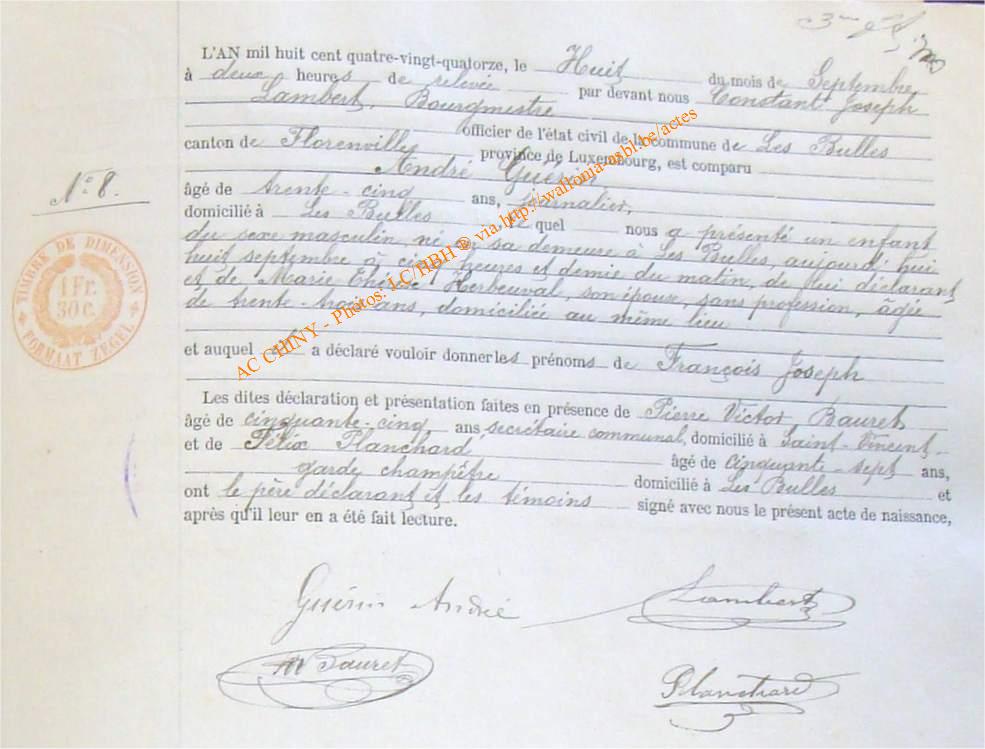 L'AN mil huit cent quatre-vingt-quatorze, le Huit du mois de Septembre
à deux heures de relevée par devant nous Constant Joseph
Lambert, Bourgmestre
officier de l'état civil de la commune de Les Bulles
canton de Florenville province de Luxembourg, est comparu
André Guérin
âgé de trente-cinq ans, journalier,
domicilié à Les Bulles le quel nous a présenté un enfant
du sexe masculin, né en sa demeure à Les Bulles, aujourd'hui
huit septembre à cinq heures et demie du matin, de lui déclarant
et de Marie Herbeuval, son épouse, sans profession, âgée
de trente-trois ans, domiciliée au même lieu
et auquel il a déclaré vouloir donner les prénoms de François Joseph
Les dites déclaration et présentation faites en présence de Pierre Victor Bauret
âgé de cinquante-cinq ans secrétaire communal, domicilié à Saint-Vincent-
et de Félix Planchard
garde champêtre âgé de cinquante-sept ans,
domicilié à Les Bulles et
ont le père déclarant et les témoins signé avec nous le présent acte de naissance,
après qu'il leur en a été fait lecture.
N° 8.
TIMBRE DE DIMENSION
1 Fr.
30 c
FORMAAT ZEGEL
AC CHINY - Photos: LC/HBH ® via http://wallonia-asbl.be/actes
Guérin André
Lambert
Bauret
Planchard